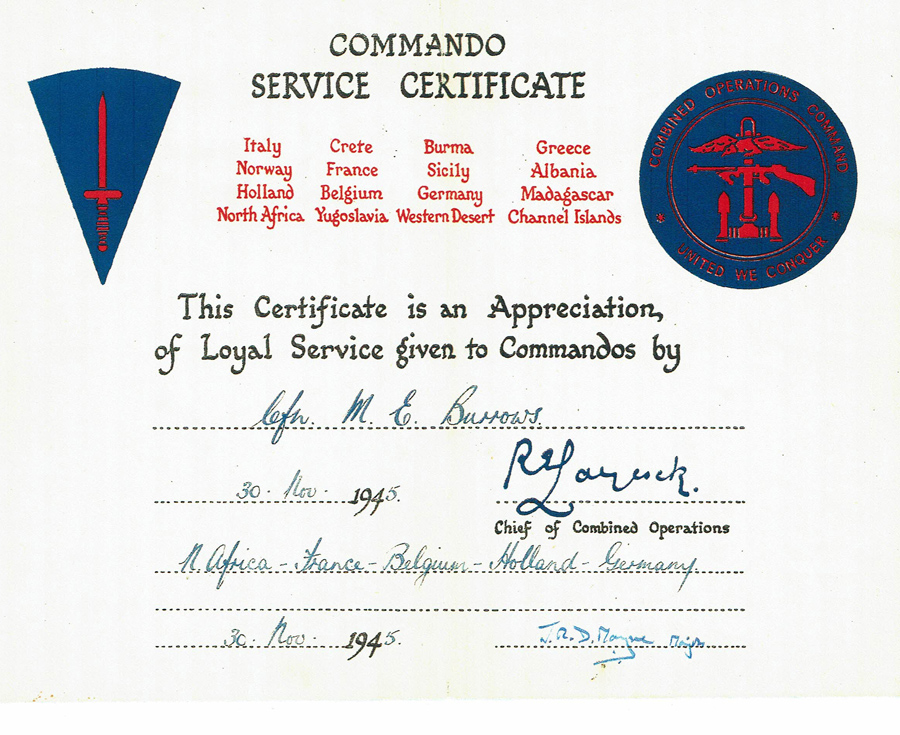 COMMANDO
SERVICE CERTIFICATE
Italy Crete Burma Greece
Norway France Sicily Albania
Holland Belgium Germany Madagascar
North Africa Yugoslavia Western Desert Channel Islands
COMBINED OPERATIONS COMMAND
UNITED WE CONQUER
This Certificate is an Appreciation,
of Loyal Service given to Commandos by
Cfn. M. E. Burrows.
30. Nov. 1945. R E Laycock.
Chief of Combined Operations
N Africa - France - Belgium - Holland - Germany
30. Nov. 1945. J.R.D. Mayne Major